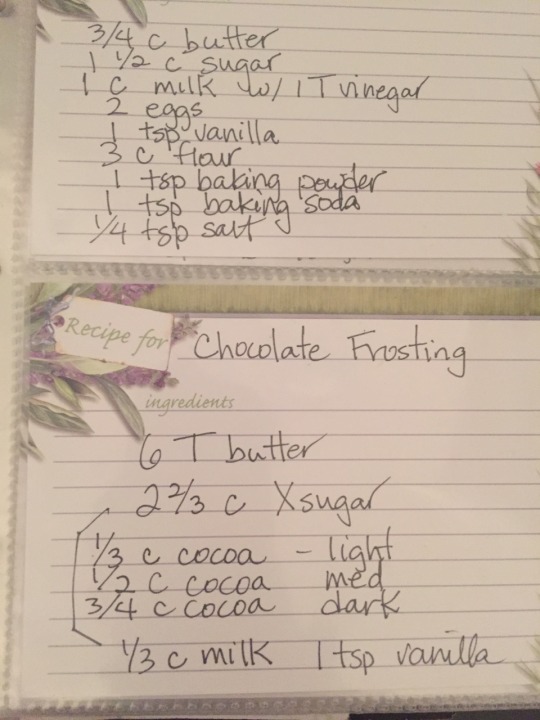 3/4 c butter
1 1/2 c sugar
1 c milk w/ 1 T vinegar
2 eggs
1 tsp vanilla
3 c flour
1 tsp baking powder
1 tsp baking soda
1/4 tsp salt
Recipe for Chocolate Frosting
ingredients
6 T butter
2 2/3 c Xsugar
1/3 c cocoa - light
1/2 c cocoa med
3/4 c cocoa dark
1/3 c milk 1 tsp vanilla